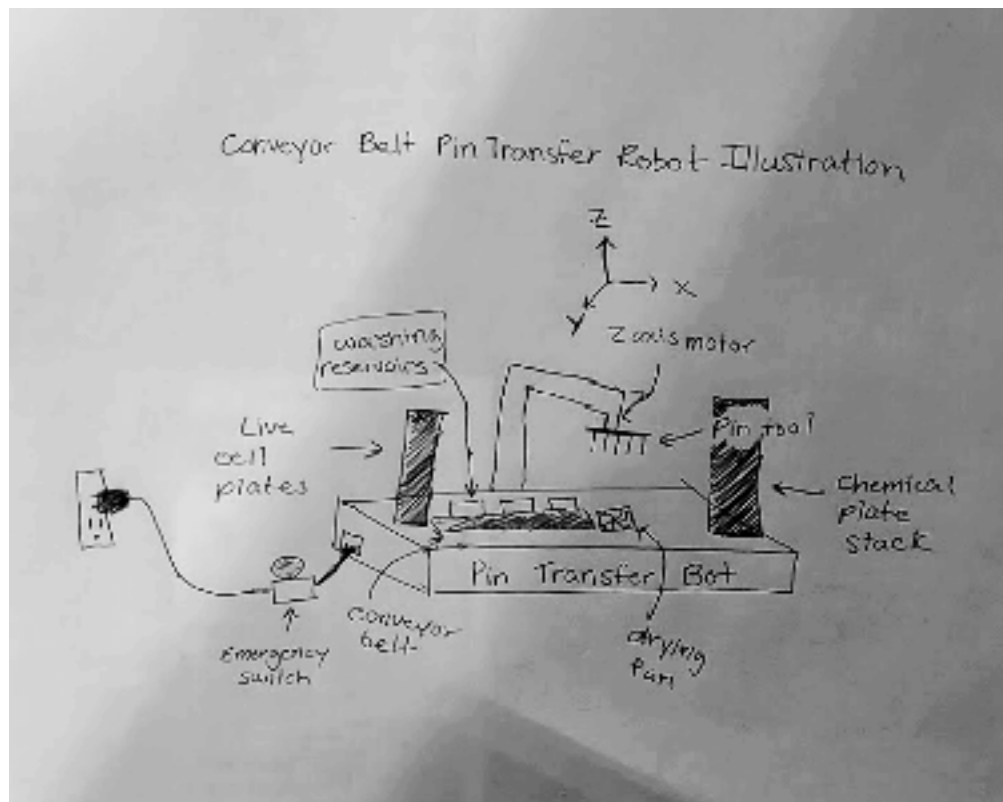 Conveyor Belt Pin Transfer Robot Illustration
Z
X
Y
Z axis motor
washing
reservoirs
Live
cell
plates
Pin tool
Chemical
plate
stack
Pin Transfer Bot
conveyor
belt
drying
fan
Emergency
switch